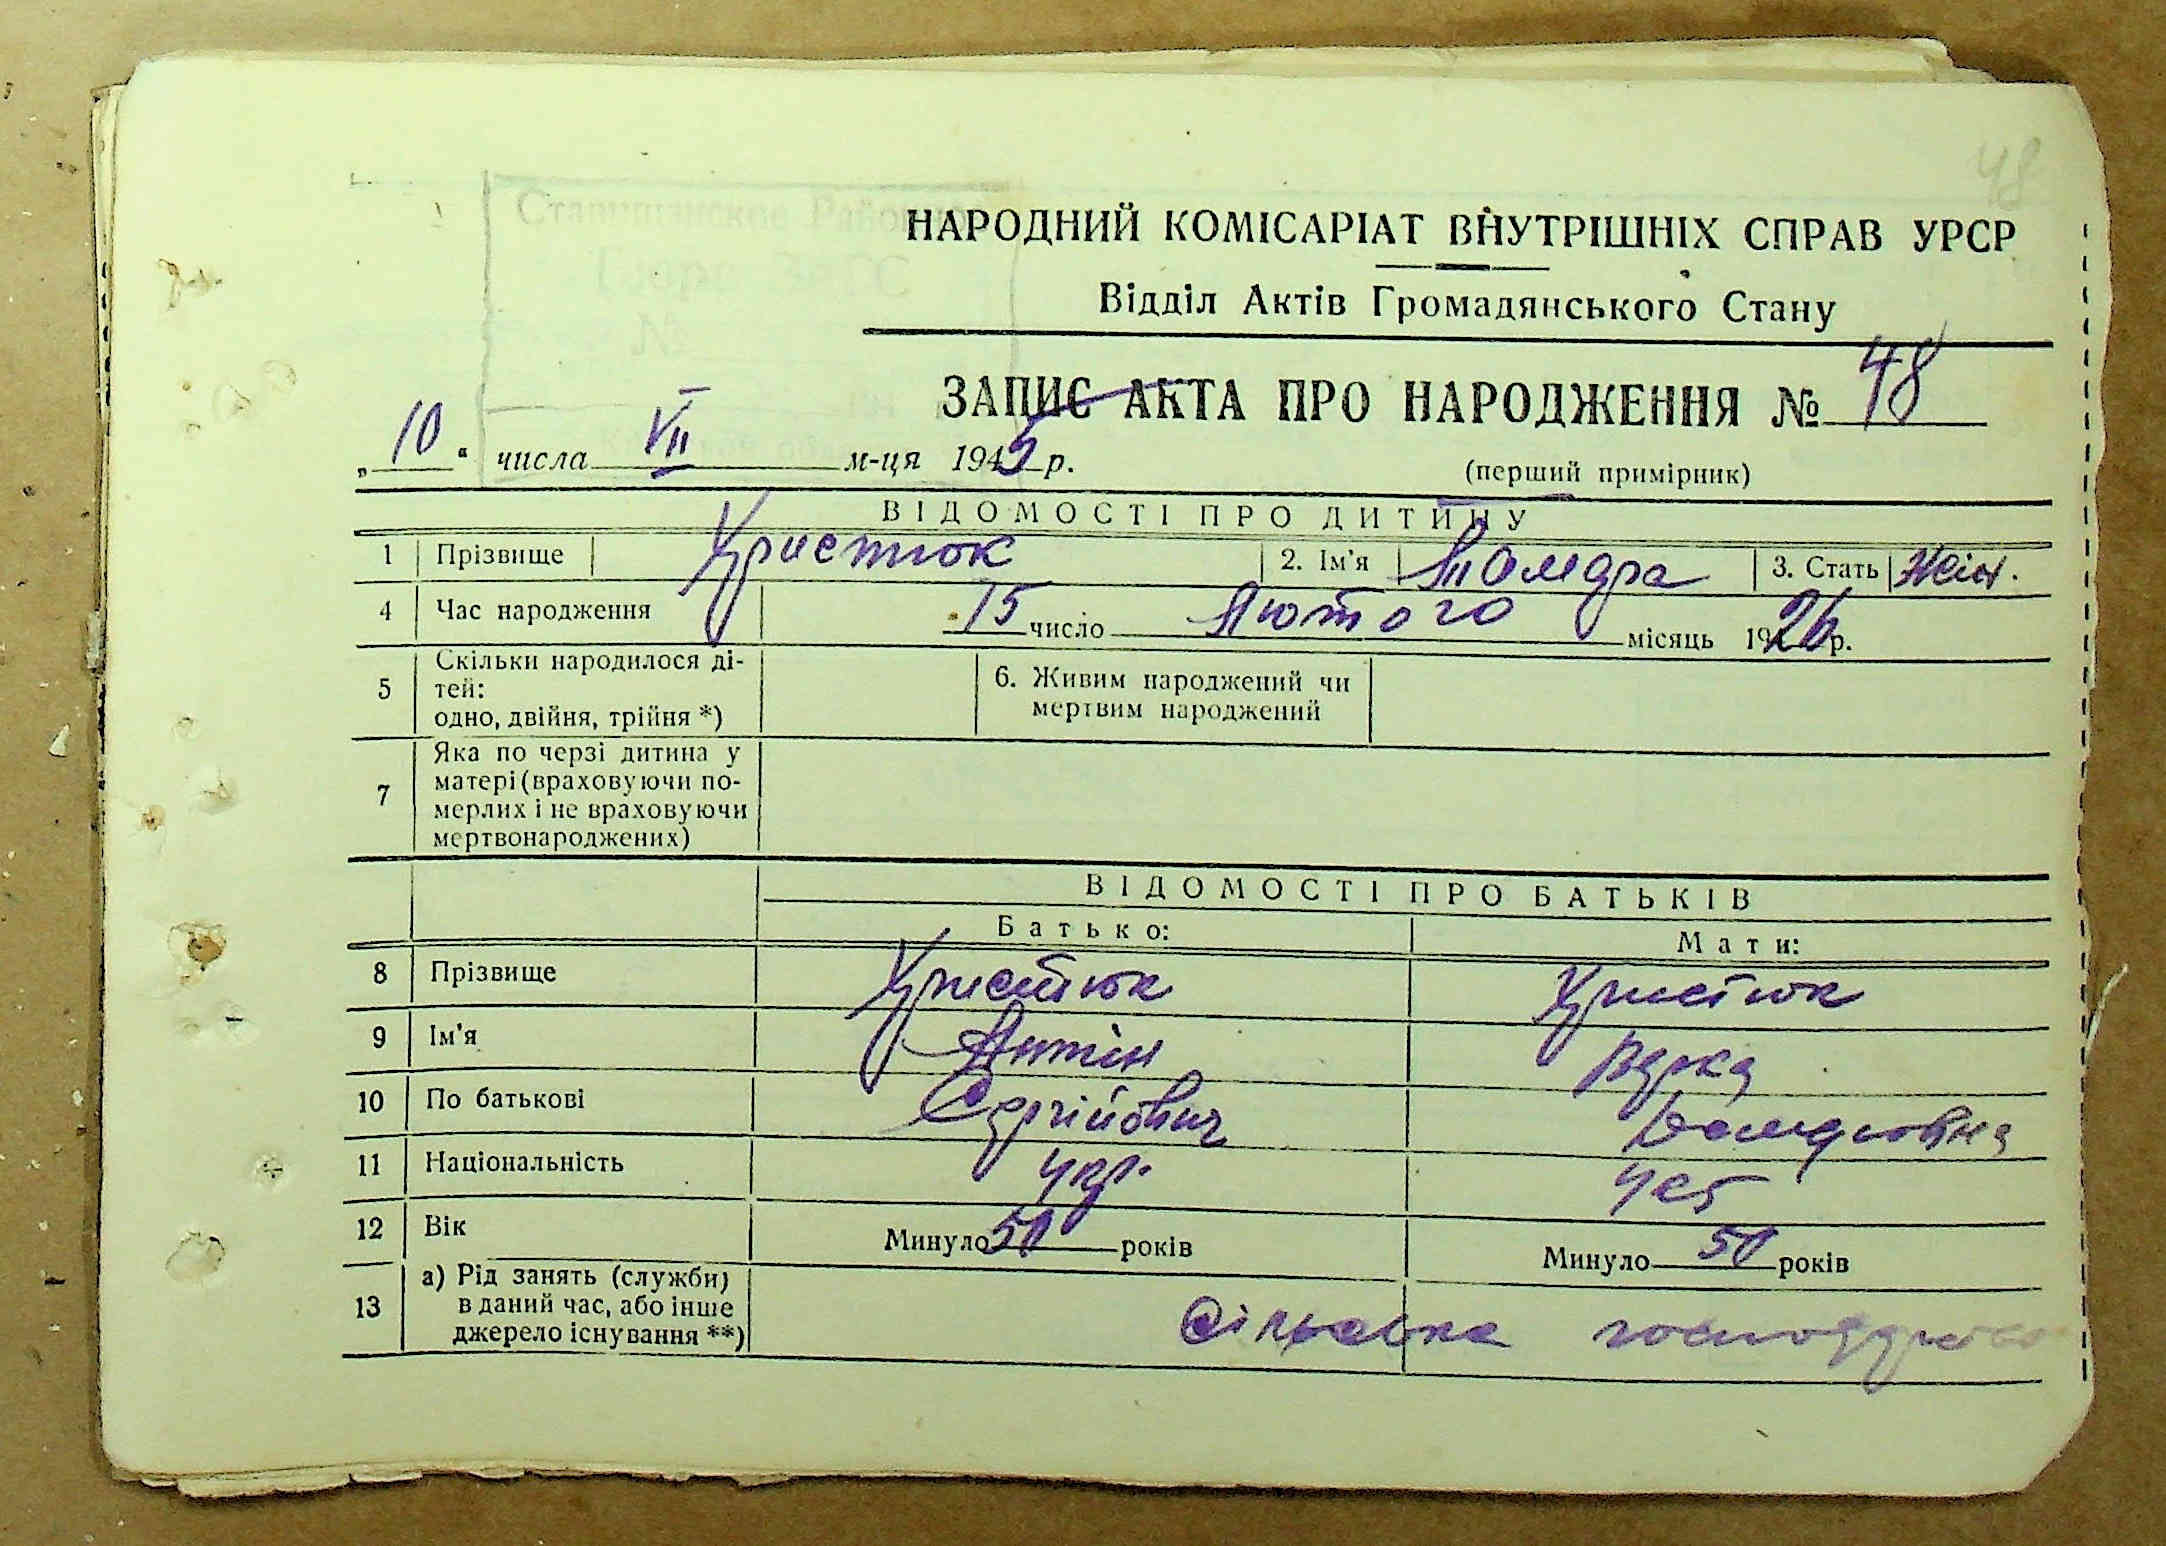 48
НАРОДНИЙ КОМІСАРІАТ ВНУТРІШНІХ СПРАВ УРСР
Відділ Актів Громадянського Стану
ЗАПИС АКТА ПРО НАРОДЖЕННЯ № 48
„10“ числа VII м-ця 1945 р.
(перший примірник)
ВІДОМОСТІ ПРО ДИТИНУ
1 Прізвище Христюк 2. Ім'я 3. Стать Жін.
4 Час народження 15 число Лютого місяць 1926 р.
5 Скільки народилося ді-
тей:
одно, двійня, трійня *)
6. Живим народжений чи
мертвим народжений
7 Яка по черзі дитина у
матері (враховуючи по-
мерлих і не враховуючи
мертвонароджених)
ВІДОМОСТІ ПРО БАТЬКІВ
Батько: Мати:
8 Прізвище Христюк Христюк
9 Ім'я Антін
10 По батькові Сергійович
11 Національність укр.
12 Вік Минуло 50 років Минуло 50 років
13 а) Рід занять (служби)
в даний час, або інше
джерело існування **)
Сільське